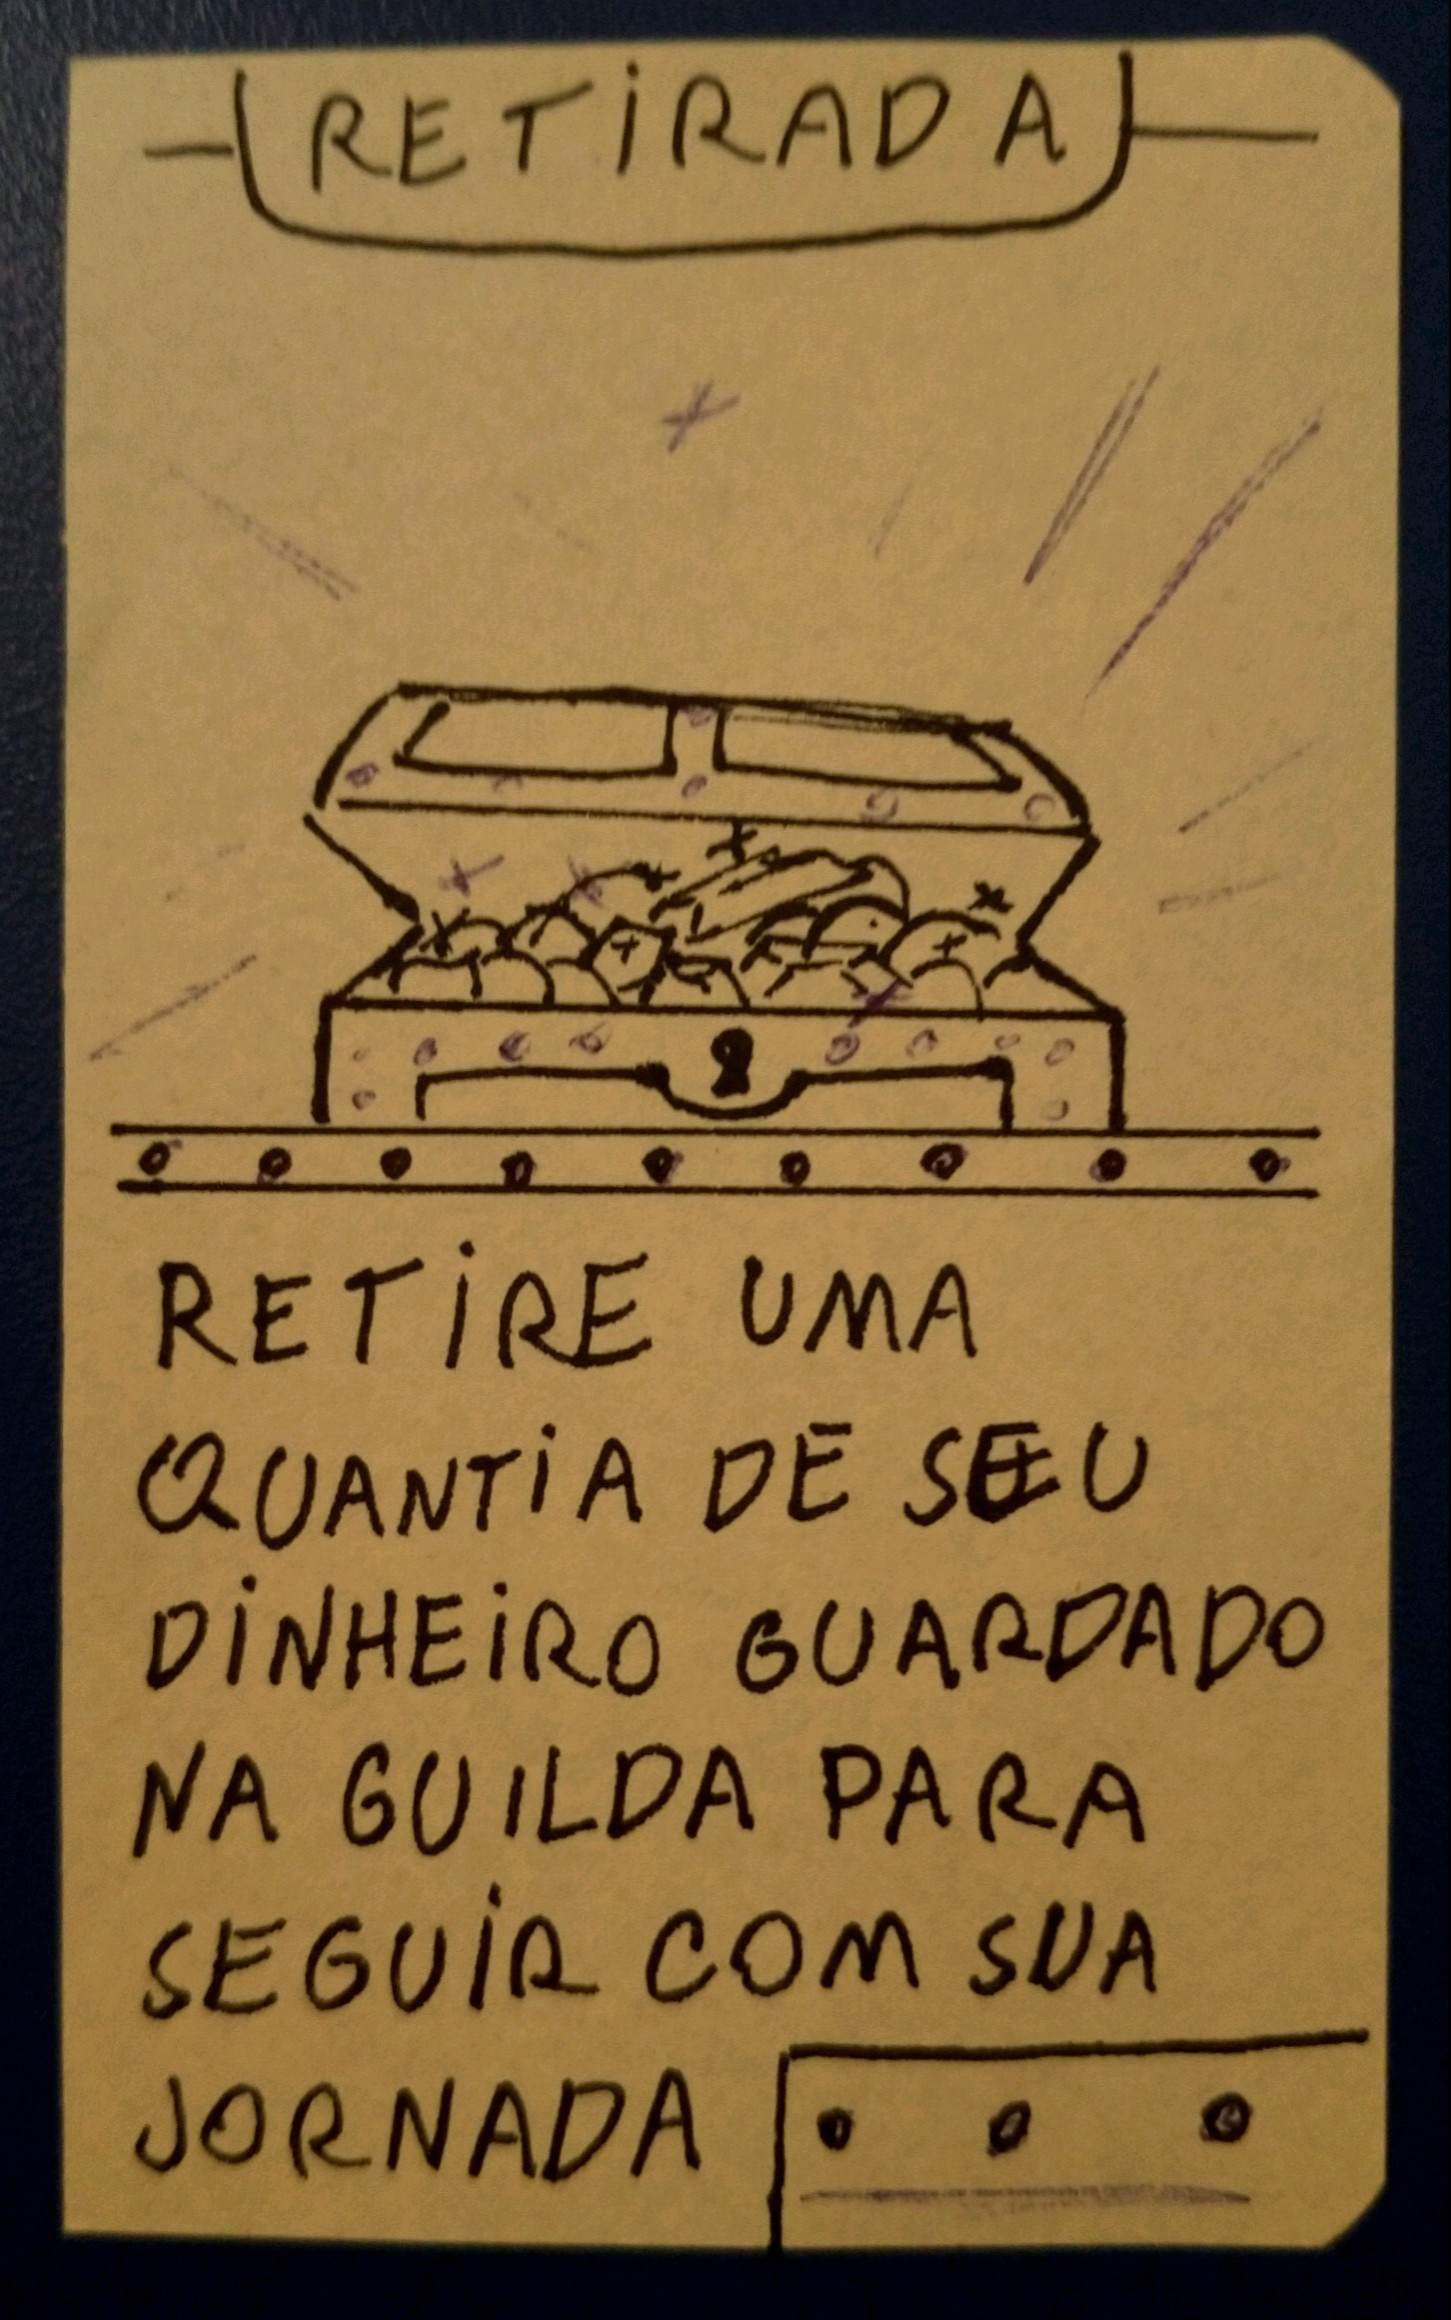 RETIRADA
RETIRE UMA
QUANTIA DE SEU
DINHEIRO GUARDADO
NA GUILDA PARA
SEGUIR COM SUA
JORNADA